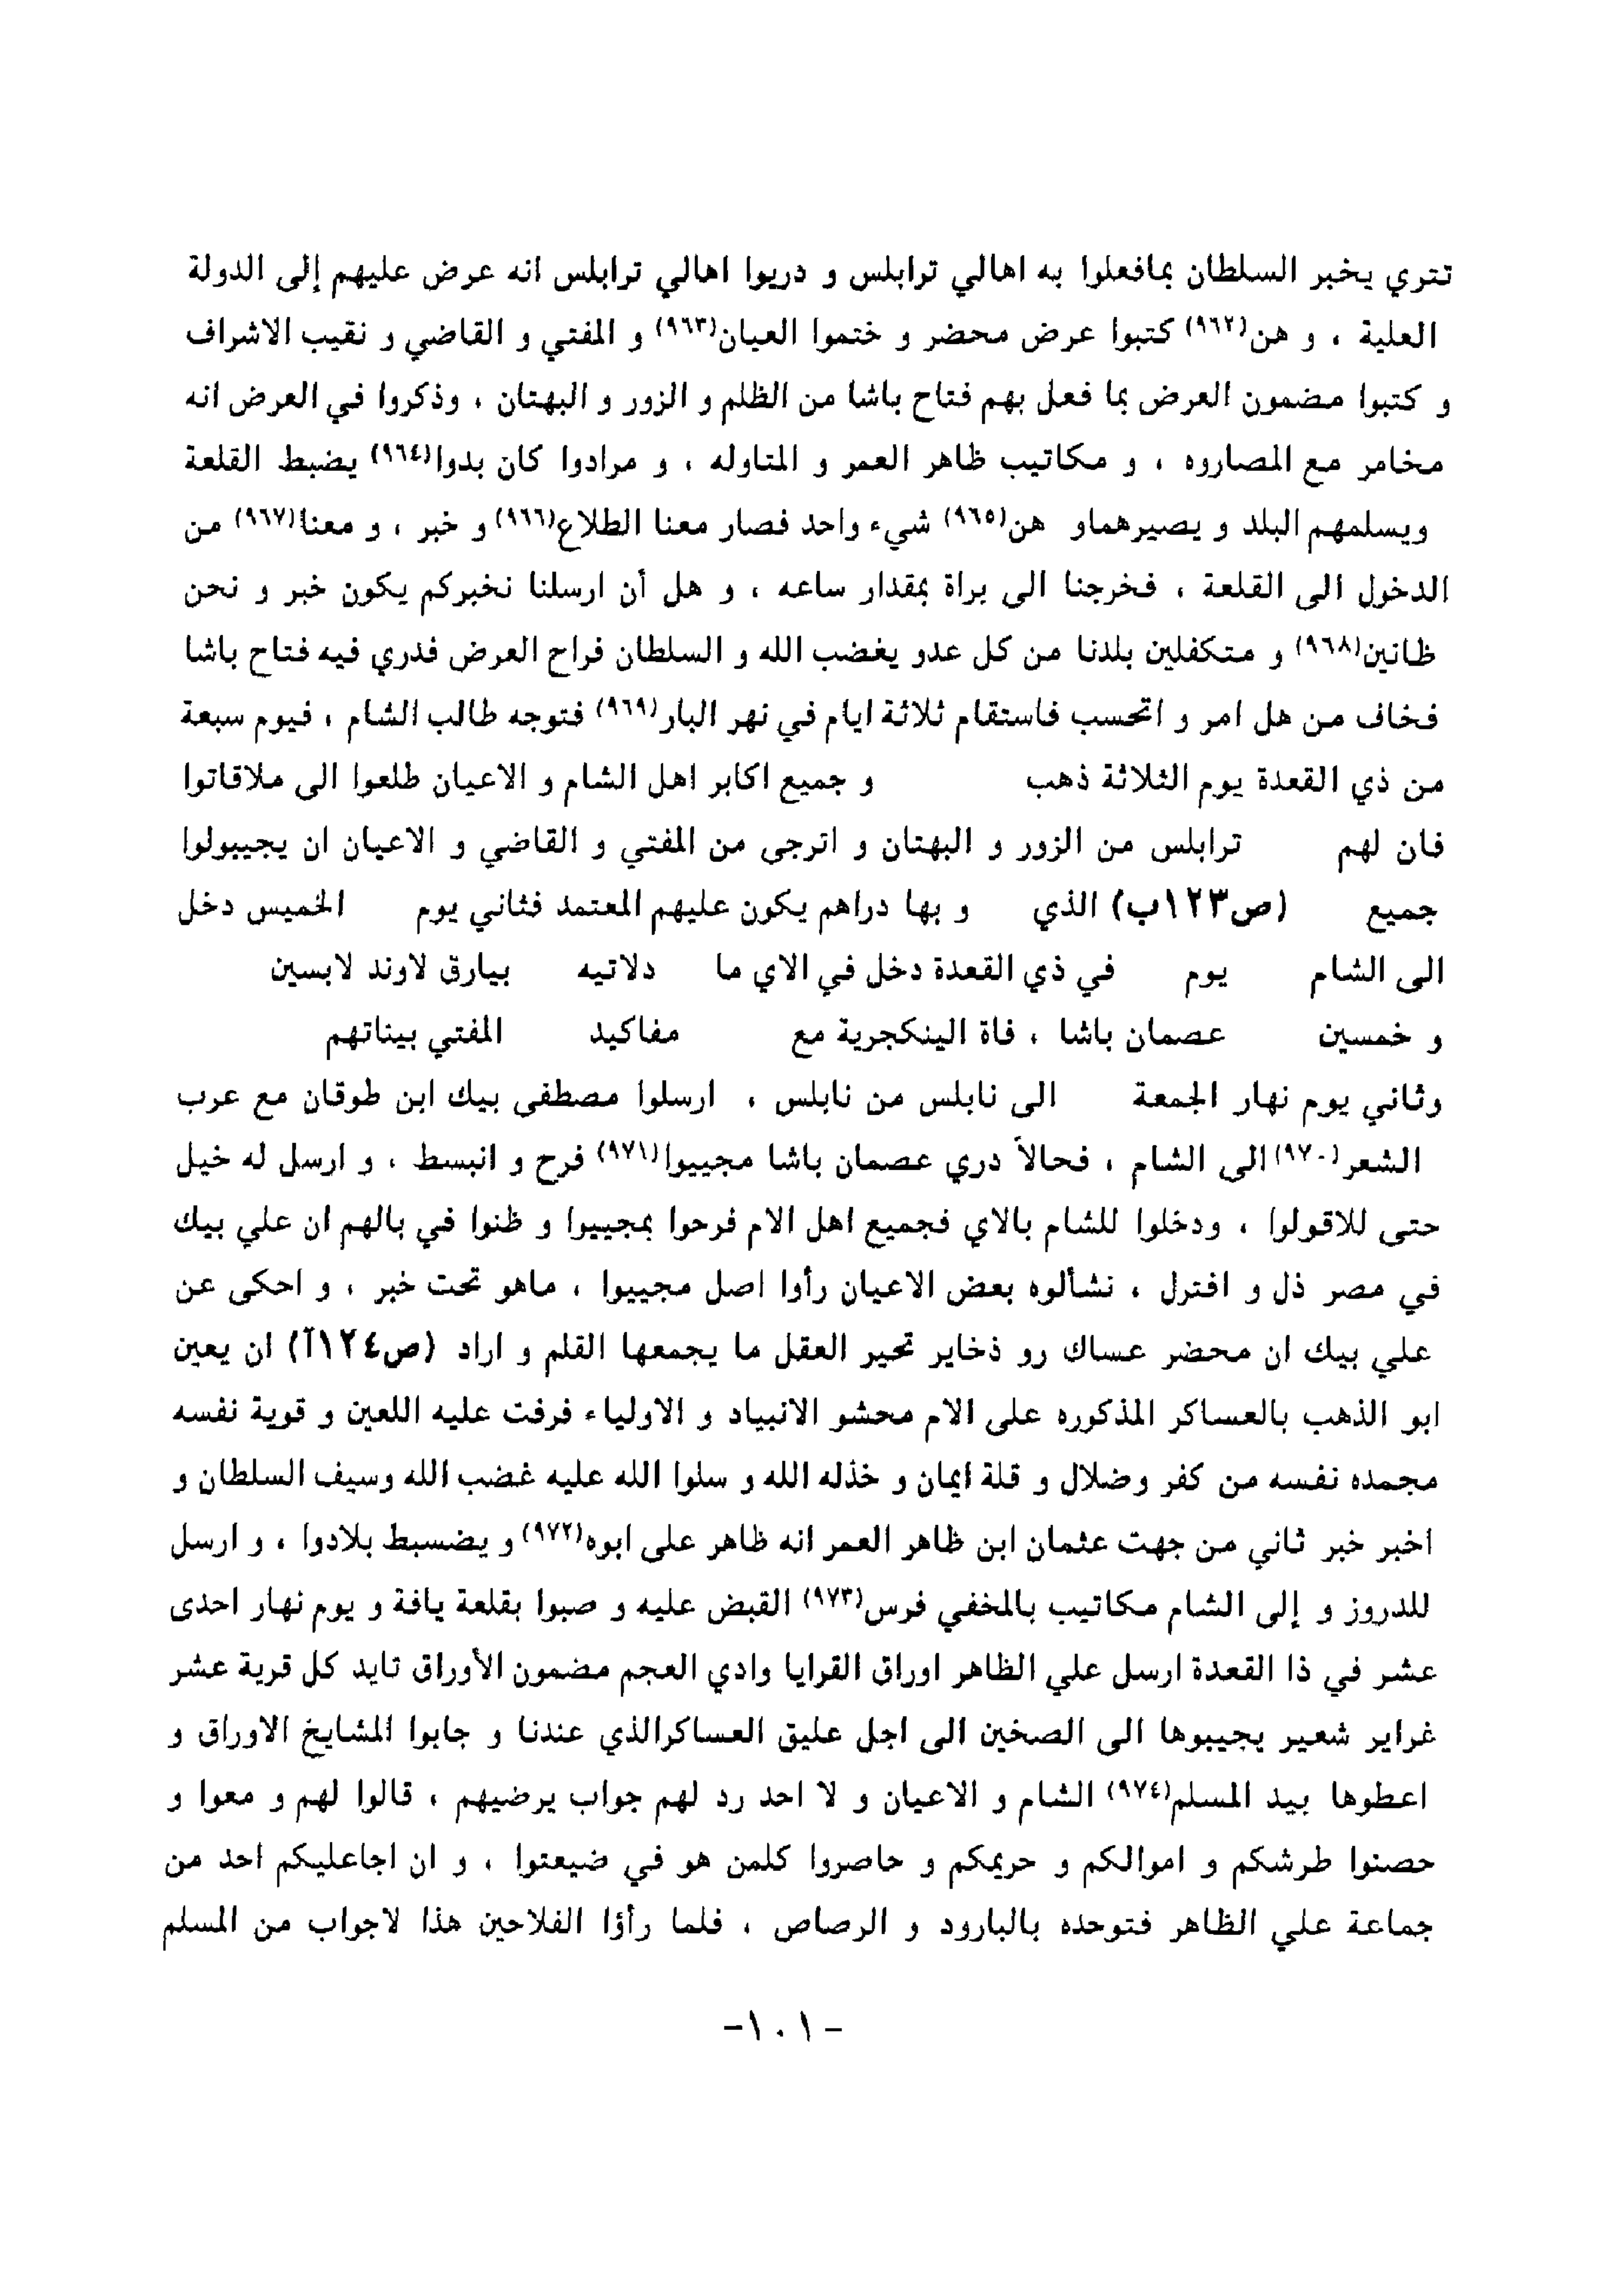 تتري يخبر السلطان بمافعلوا به اهالي ترابلس و دريوا اهالي ترابلس انه عرض عليهم إلى الدولة
العلية ، و هن(٩٦٢) كتبوا عرض محضر و ختموا العيان(٩٦٣) و المفتي و القاضي و نقيب الاشراف
و كتبوا مضمون العرض بما فعل بهم فتاح باشا من الظلم و الزور و البهتان ، وذكروا في العرض انه
مخامر مع المصاروه ، و مكاتيب ظاهر العمر و المتاوله ، و مرادوا كان بدوا(٩٦٤) يضبط القلعة
ويسلمهم البلد و يصيرهماو هن(٩٦٥) شيء واحد فصار معنا الطلاع(٩٦٦) و خبر ، و معنا(٩٦٧) من
الدخول الى القلعة ، فخرجنا الى براة بمقدار ساعه ، و هل أن ارسلنا نخبركم يكون خبر و نحن
ظانين(٩٦٨) و متكفلين بلدنا من كل عدو يغضب الله و السلطان فراح العرض فدري فيه فتاح باشا
فخاف من هل امر و اتحسب فاستقام ثلاثة ايام في نهر البار(٩٦٩) فتوجه طالب الشام ، فيوم سبعة
من ذي القعدة يوم الثلاثة ذهب و جميع اكابر اهل الشام و الاعيان طلعوا الى ملاقاتوا
فان لهم ترابلس من الزور و البهتان و اترجى من المفتي و القاضي و الاعيان ان يجيبولوا
جميع (ص١٢٣ب) الذي و بها دراهم يكون عليهم المعتمد فثاني يوم الخميس دخل
الى الشام يوم في ذي القعدة دخل في الاي ما دلاتيه بيارق لاوند لابسين
و خمسين عصمان باشا ، فاة الينكجرية مع مفاكيد المفتي بيناتهم
وثاني يوم نهار الجمعة الى نابلس من نابلس ، ارسلوا مصطفى بيك ابن طوقان مع عرب
الشعر(٩٧٠) الى الشام ، فحالاً دري عصمان باشا مجييوا(٩٧١) فرح و انبسط ، و ارسل له خيل
حتى للاقولوا ، ودخلوا للشام بالاي فجميع اهل الام فرحوا بمجييوا و ظنوا في بالهم ان علي بيك
في مصر ذل و افترل ، نشألوه بعض الاعيان رأوا اصل مجييوا ، ماهو تحت خبر ، و احكى عن
علي بيك ان محضر عساك رو ذخاير تحير العقل ما يجمعها القلم و اراد (ص١٢٤آ) ان يعين
ابو الذهب بالعساكر المذكوره على الام محشو الانبياد و الاولياء فرفت عليه اللعين و قوية نفسه
مجمده نفسه من كفر وضلال و قلة ايمان و خذله الله و سلوا الله عليه غضب الله وسيف السلطان و
اخبر خبر ثاني من جهت عثمان ابن ظاهر العمر انه ظاهر على ابوه(٩٧٢) و يضسبط بلادوا ، و ارسل
للدروز و إلى الشام مكاتيب بالمخفي فرس(٩٧٣) القبض عليه و صبوا بقلعة يافة و يوم نهار احدى
عشر في ذا القعدة ارسل علي الظاهر اوراق القرايا وادي العجم مضمون الأوراق تايد كل قرية عشر
غراير شعير يجيبوها الى الصخين الى اجل عليق العساكرالذي عندنا و جابوا المشايخ الاوراق و
اعطوها بيد المسلم(٩٧٤) الشام و الاعيان و لا احد رد لهم جواب يرضيهم ، قالوا لهم و معوا و
حصنوا طرشكم و اموالكم و حريمكم و حاصروا كلمن هو في ضيعتوا ، و ان اجاعليكم احد من
جماعة علي الظاهر فتوحده بالبارود و الرصاص ، فلما رأؤا الفلاحين هذا لاجواب من المسلم
-١٠١-